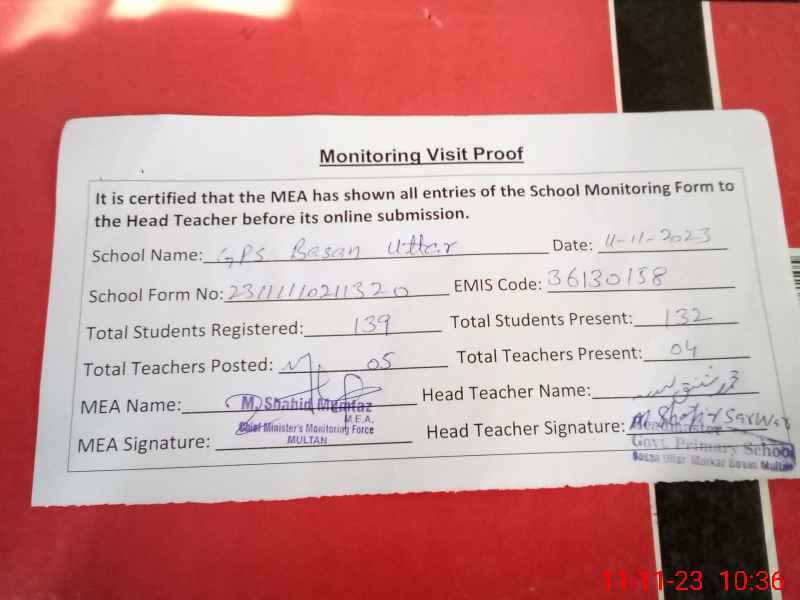 Monitoring Visit Proof
It is certified that the MEA has shown all entries of the School Monitoring Form to
the Head Teacher before its online submission.
School Name: GPS Basan Uttar Date: 11-11-2023
School Form No: EMIS Code: 36130138
Total Students Registered: 139 Total Students Present: 132
Total Teachers Posted: 05 Total Teachers Present: 04
MEA Name: M. Shahid Mumtaz Head Teacher Name:
M.E.A.
Chief Minister's Monitoring Force
MULTAN
MEA Signature: Head Teacher Signature: M. Shafiq Sarwar
Govt. Primary School
Basan Uttar Markaz Bosan Multan
11-11-23 10:36